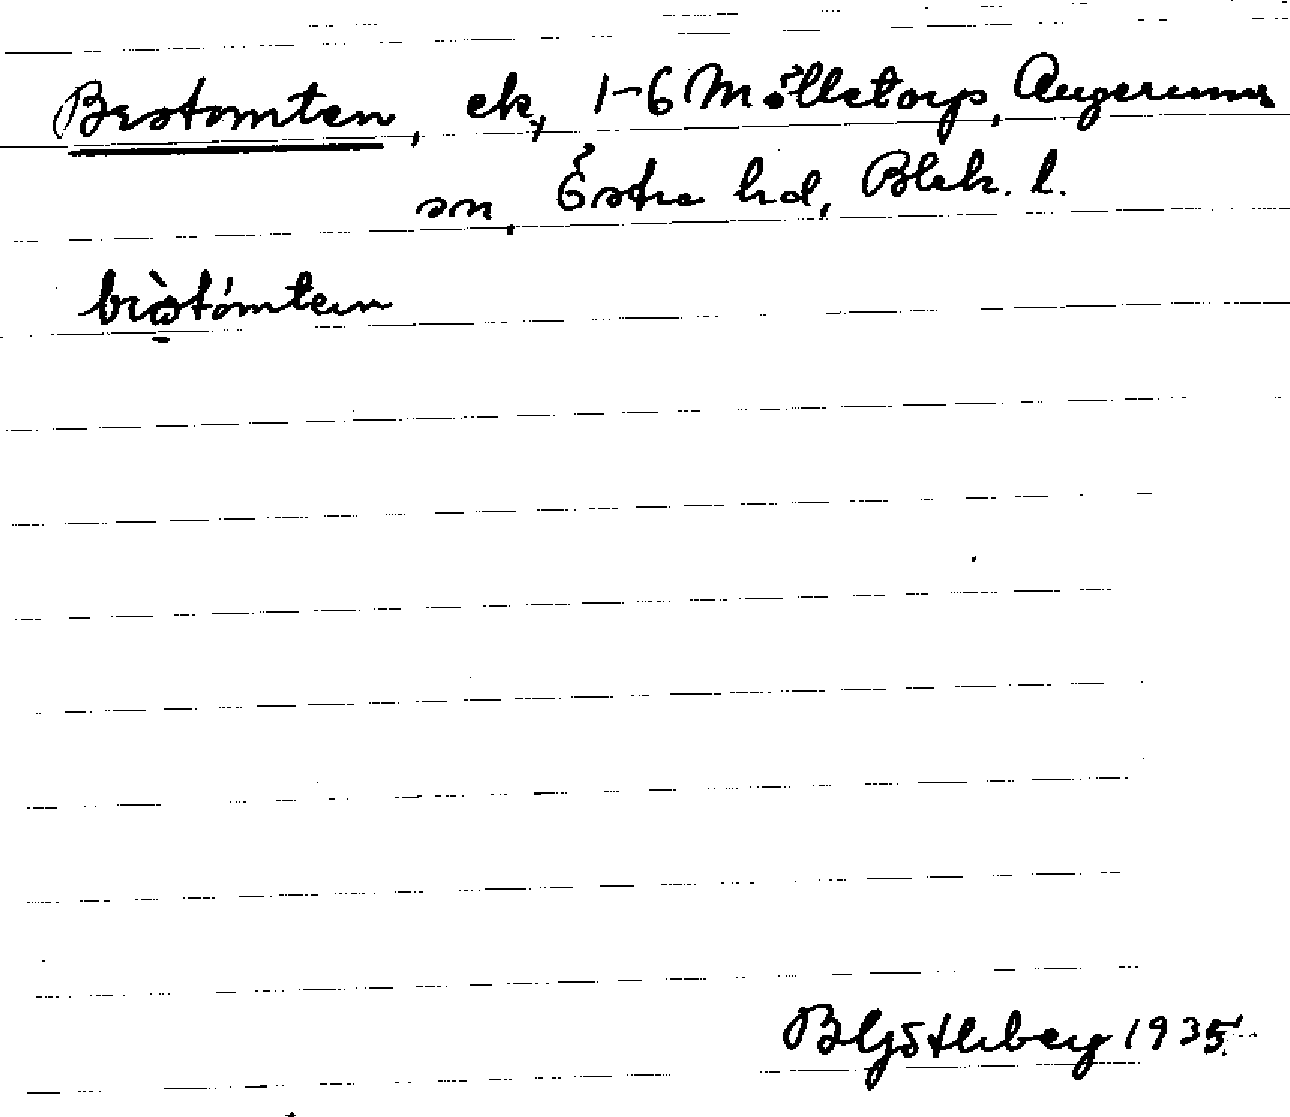 Brotomten, ek, 1-6 Mölletorp, Augerums
sn, Östra hd, Blek. l.
bròtómten
1935